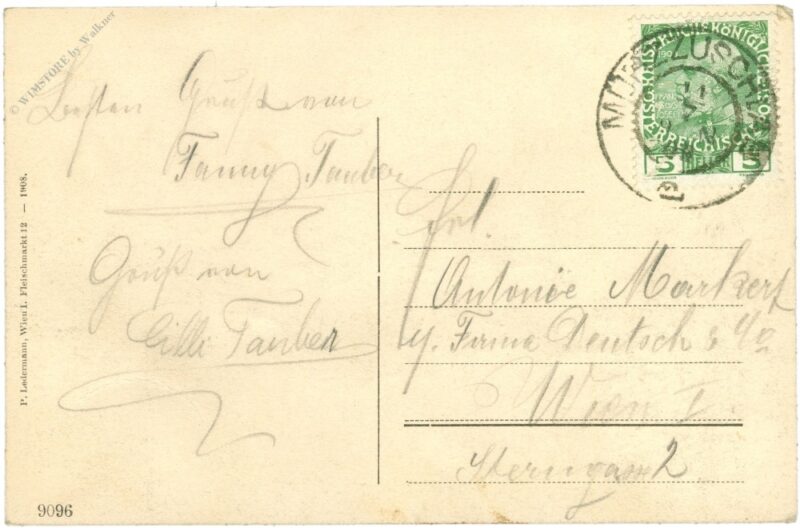 WIMSTORE by Walkner
Besten Gruß von
Fanny Tauber
Gruß von
Cilli Tauber
P. Ledermann, Wien I. Fleischmarkt 12 — 1908.
9096
MÜRZZUSCHLAG
5 5
Frl.
Antonie Markert
Firma Deutsch & Co
Wien I.
Sterngasse 2